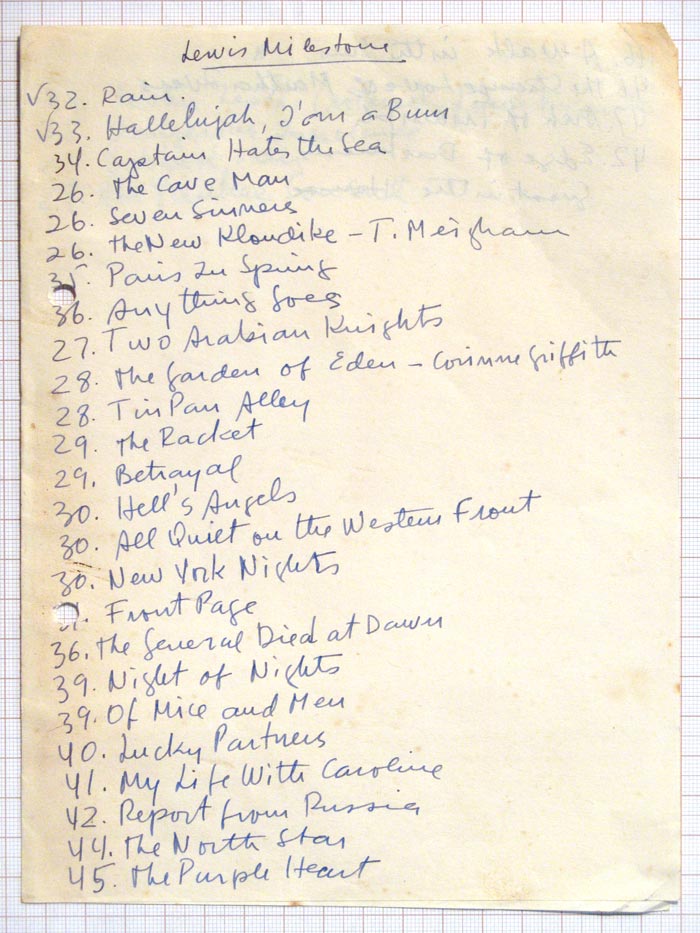 Lewis Milestone
√32. Rain.
√33. Hallelujah, I'om a Bum
34. Captain Hates the Sea
26. The Cave Man
26. Seven Sinners
26. the New Klondike – T. Meigham
35. Paris In Spring
36. Anything Goes
27. Two Arabian Knights
28. The Garden of Eden – Corinne Griffith
28. Tin Pan Alley
29. the Racket
29. Betrayal
30. Hell's Angels
30. All Quiet on the Western Front
30. New York Nights
1. Front Page
36. the General Died at Dawn
39. Night of Nights
39. Of Mice and Men
40. Lucky Partners
41. My Life With Caroline
42. Report from Russia
44. The North Star
45. the Purple Heart